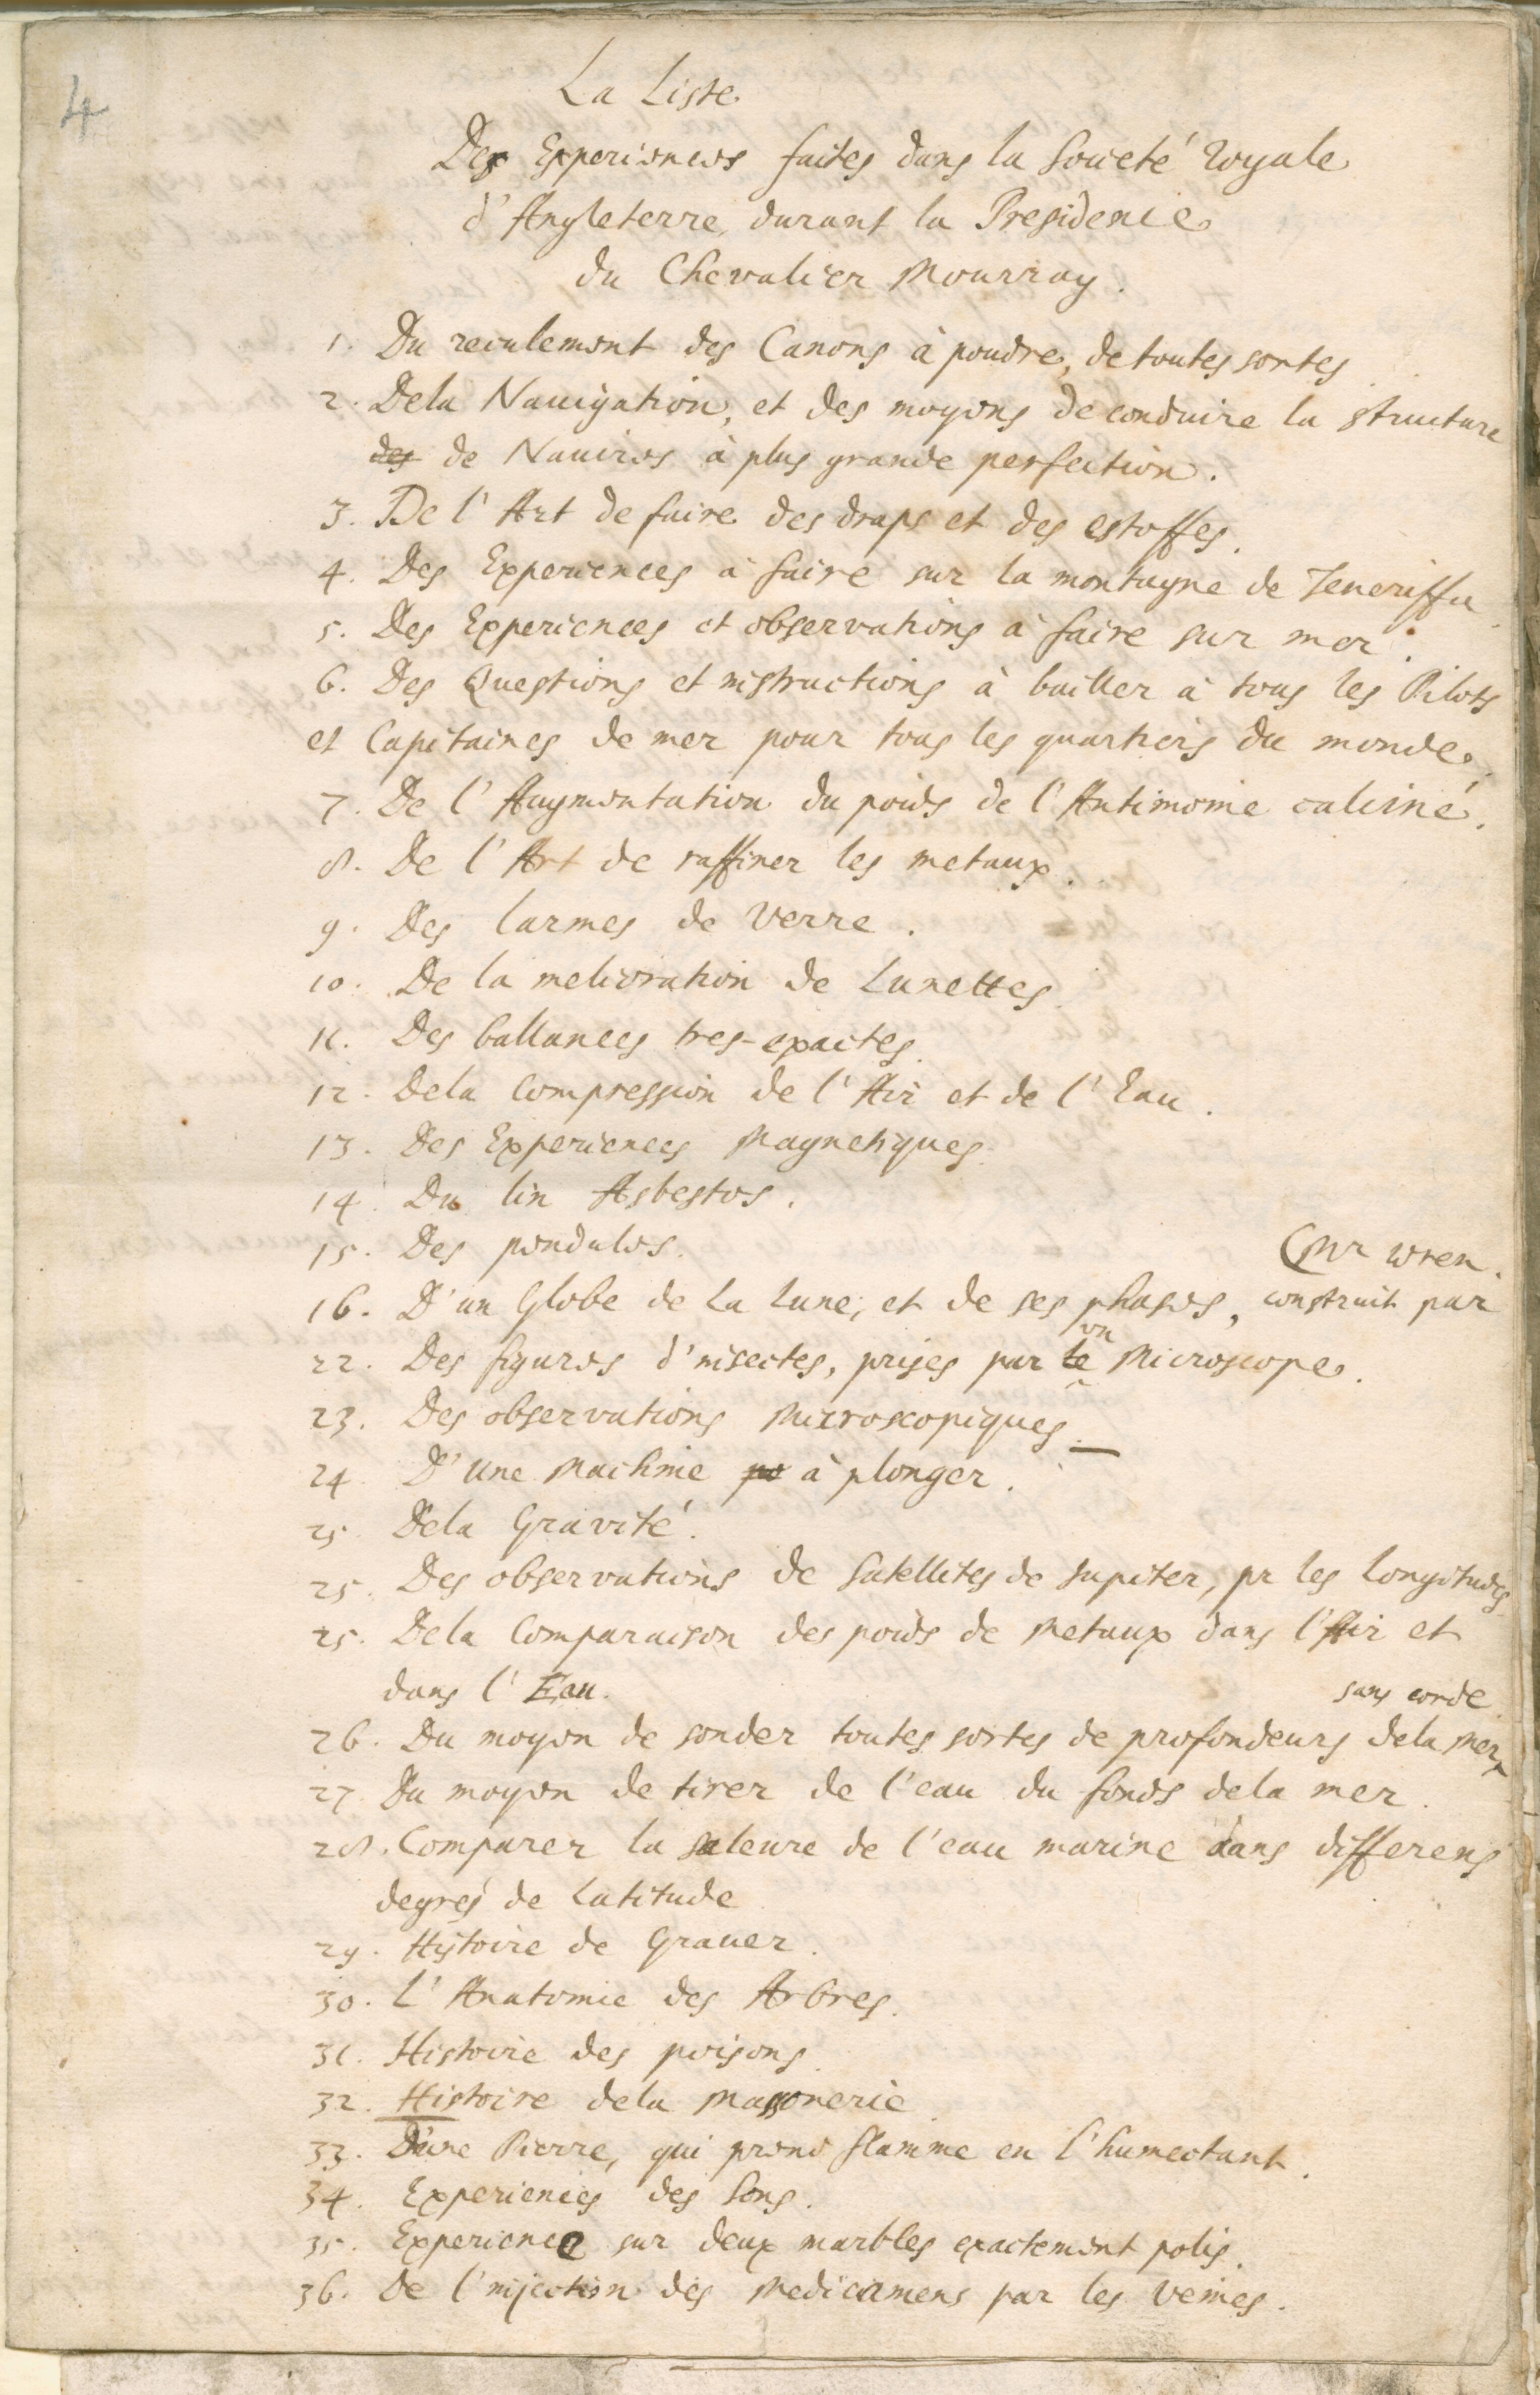 4
La Liste
Des Experiences faites dans la Societé Royale
d'Angleterre, durant la Presidence
du Chevalier Mourray.
1. Du reculement des Canons à poudre, de toutes sortes
2. Dela Nauigation, et des moyens de conduire la structure
des de Nauires à plus grande perfection.
3. De l'Art de faire des draps et des estoffes.
4. Des Experiences à faire sur la montagne de Teneriffa.
5. Des Experiences et observations à faire sur mer.
6. Des Questions et instructions à bailler à tous les Pilots
et Capitaines de mer pour tous les quartiers du monde.
7. De l'Augmentation du poids de l'Antimoine calciné.
8. De l'Art de raffiner les metaux.
9. Des larmes de Verre.
10. De la melioration de Lunettes.
11. Des ballances tres-exactes.
12. Dela Compression de l'Air et de l'Eau.
13. Des Experiences Magnetiques.
14. Du lin Asbestos.
15. Des pendules.
(Mr Wren.
16. D'un Globe de La Lune, et de ses phases, construit par
un
22. Des figures d'insectes, prises par le Microscope.
23. Des observations Microscopiques.
24. D'une Machine po à plonger.
25. Dela Gravité.
25. Des observations de Satellites de Jupiter, pr les Longitudes.
25. Dela Comparaison des poids de Metaux dans l'Air et
dans l'Eau.
sans corde
26. Du moyen de sonder toutes sortes de profondeurs dela Mer
27. Du moyen de tirer de l'eau du fonds dela mer.
28. Comparer la saleure de l'eau marine dans differens
degrés de Latitude
29. Histoire de Grauer.
30. L'Anatomie des Arbres.
31. Histoire des poisons.
32. Histoire dela Massonerie.
33. D'une Pierre, qui prend flamme en l'humectant.
34. Experiences des Sons.
35. Experience sur deux marbles exactement polis.
36. De l'injection des Medicamens par les Veines.